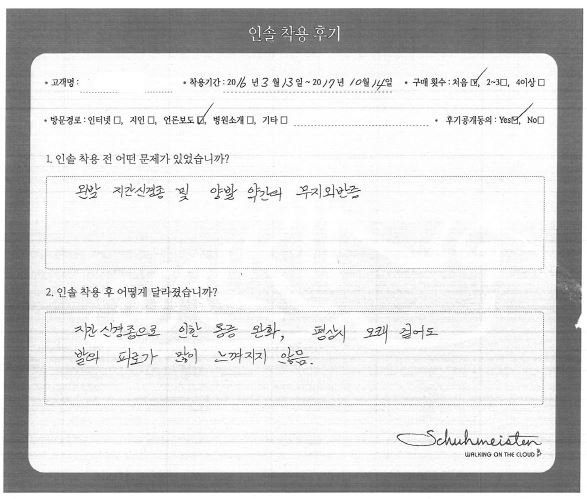 인솔 착용 후기
• 고객명 : • 착용기간 : 2016 년 3 월 13 일 ~ 2017 년 10 월 14 일 • 구매 횟수 : 처음 ☑, 2~3 □, 4이상 □
• 방문경로 : 인터넷 □, 지인 □, 언론보도 ☑, 병원소개 □, 기타 □ • 후기공개동의 : Yes ☑, No □
1. 인솔 착용 전 어떤 문제가 있었습니까?
왼발 지간신경종 및 양발 약간의 무지외반증
2. 인솔 착용 후 어떻게 달라졌습니까?
지간신경종으로 인한 통증 완화, 평상시 오래 걸어도
발의 피로가 많이 느껴지지 않음.
Schuhmeister
WALKING ON THE CLOUD